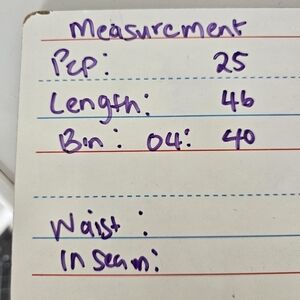 Measurement
Pcp: 25
Length: 46
Bin: 04: 40
Waist:
Inseam: